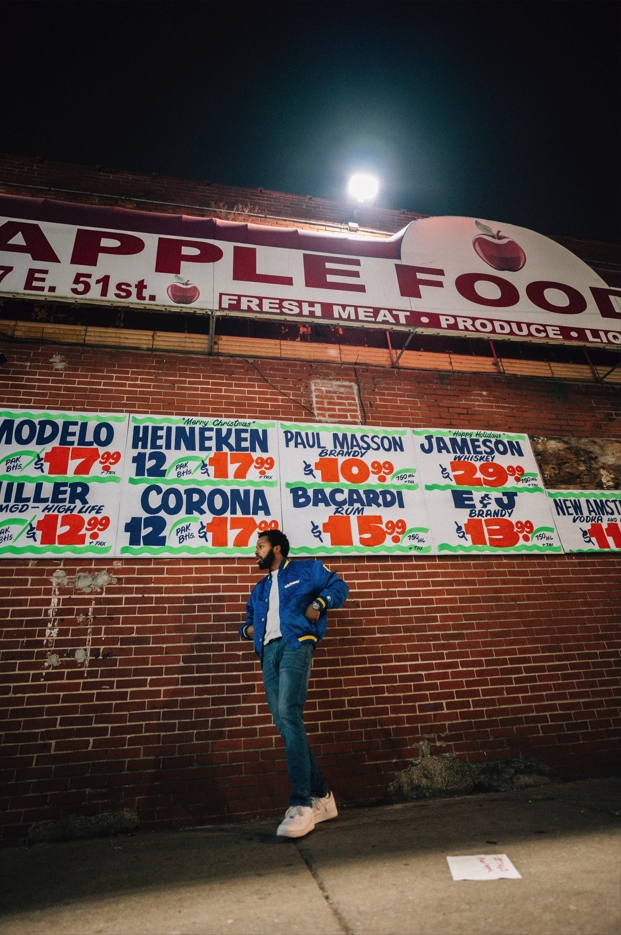 APPLE FOOD
7 E. 51st.
FRESH MEAT • PRODUCE • LIQ
MODELO
PAK
Btls.
17.99
+ TAX
MILLER
MGD-HIGH LIFE
PAK
Btls.
12.99
+ TAX
"Merry Christmas"
HEINEKEN
12 PAK
Btls.
17.99
+ TAX
CORONA
12 PAK
Btls.
17.99
PAUL MASSON
BRANDY
10.99
750 ML
+ TAX
BACARDI
RUM
15.99
750 ML
+ TAX
"Happy Holidays"
JAMESON
WHISKEY
29.99
750 ML
+ TAX
E & J
BRANDY
13.99
750 ML
+ TAX
NEW AMST
VODKA AND
11